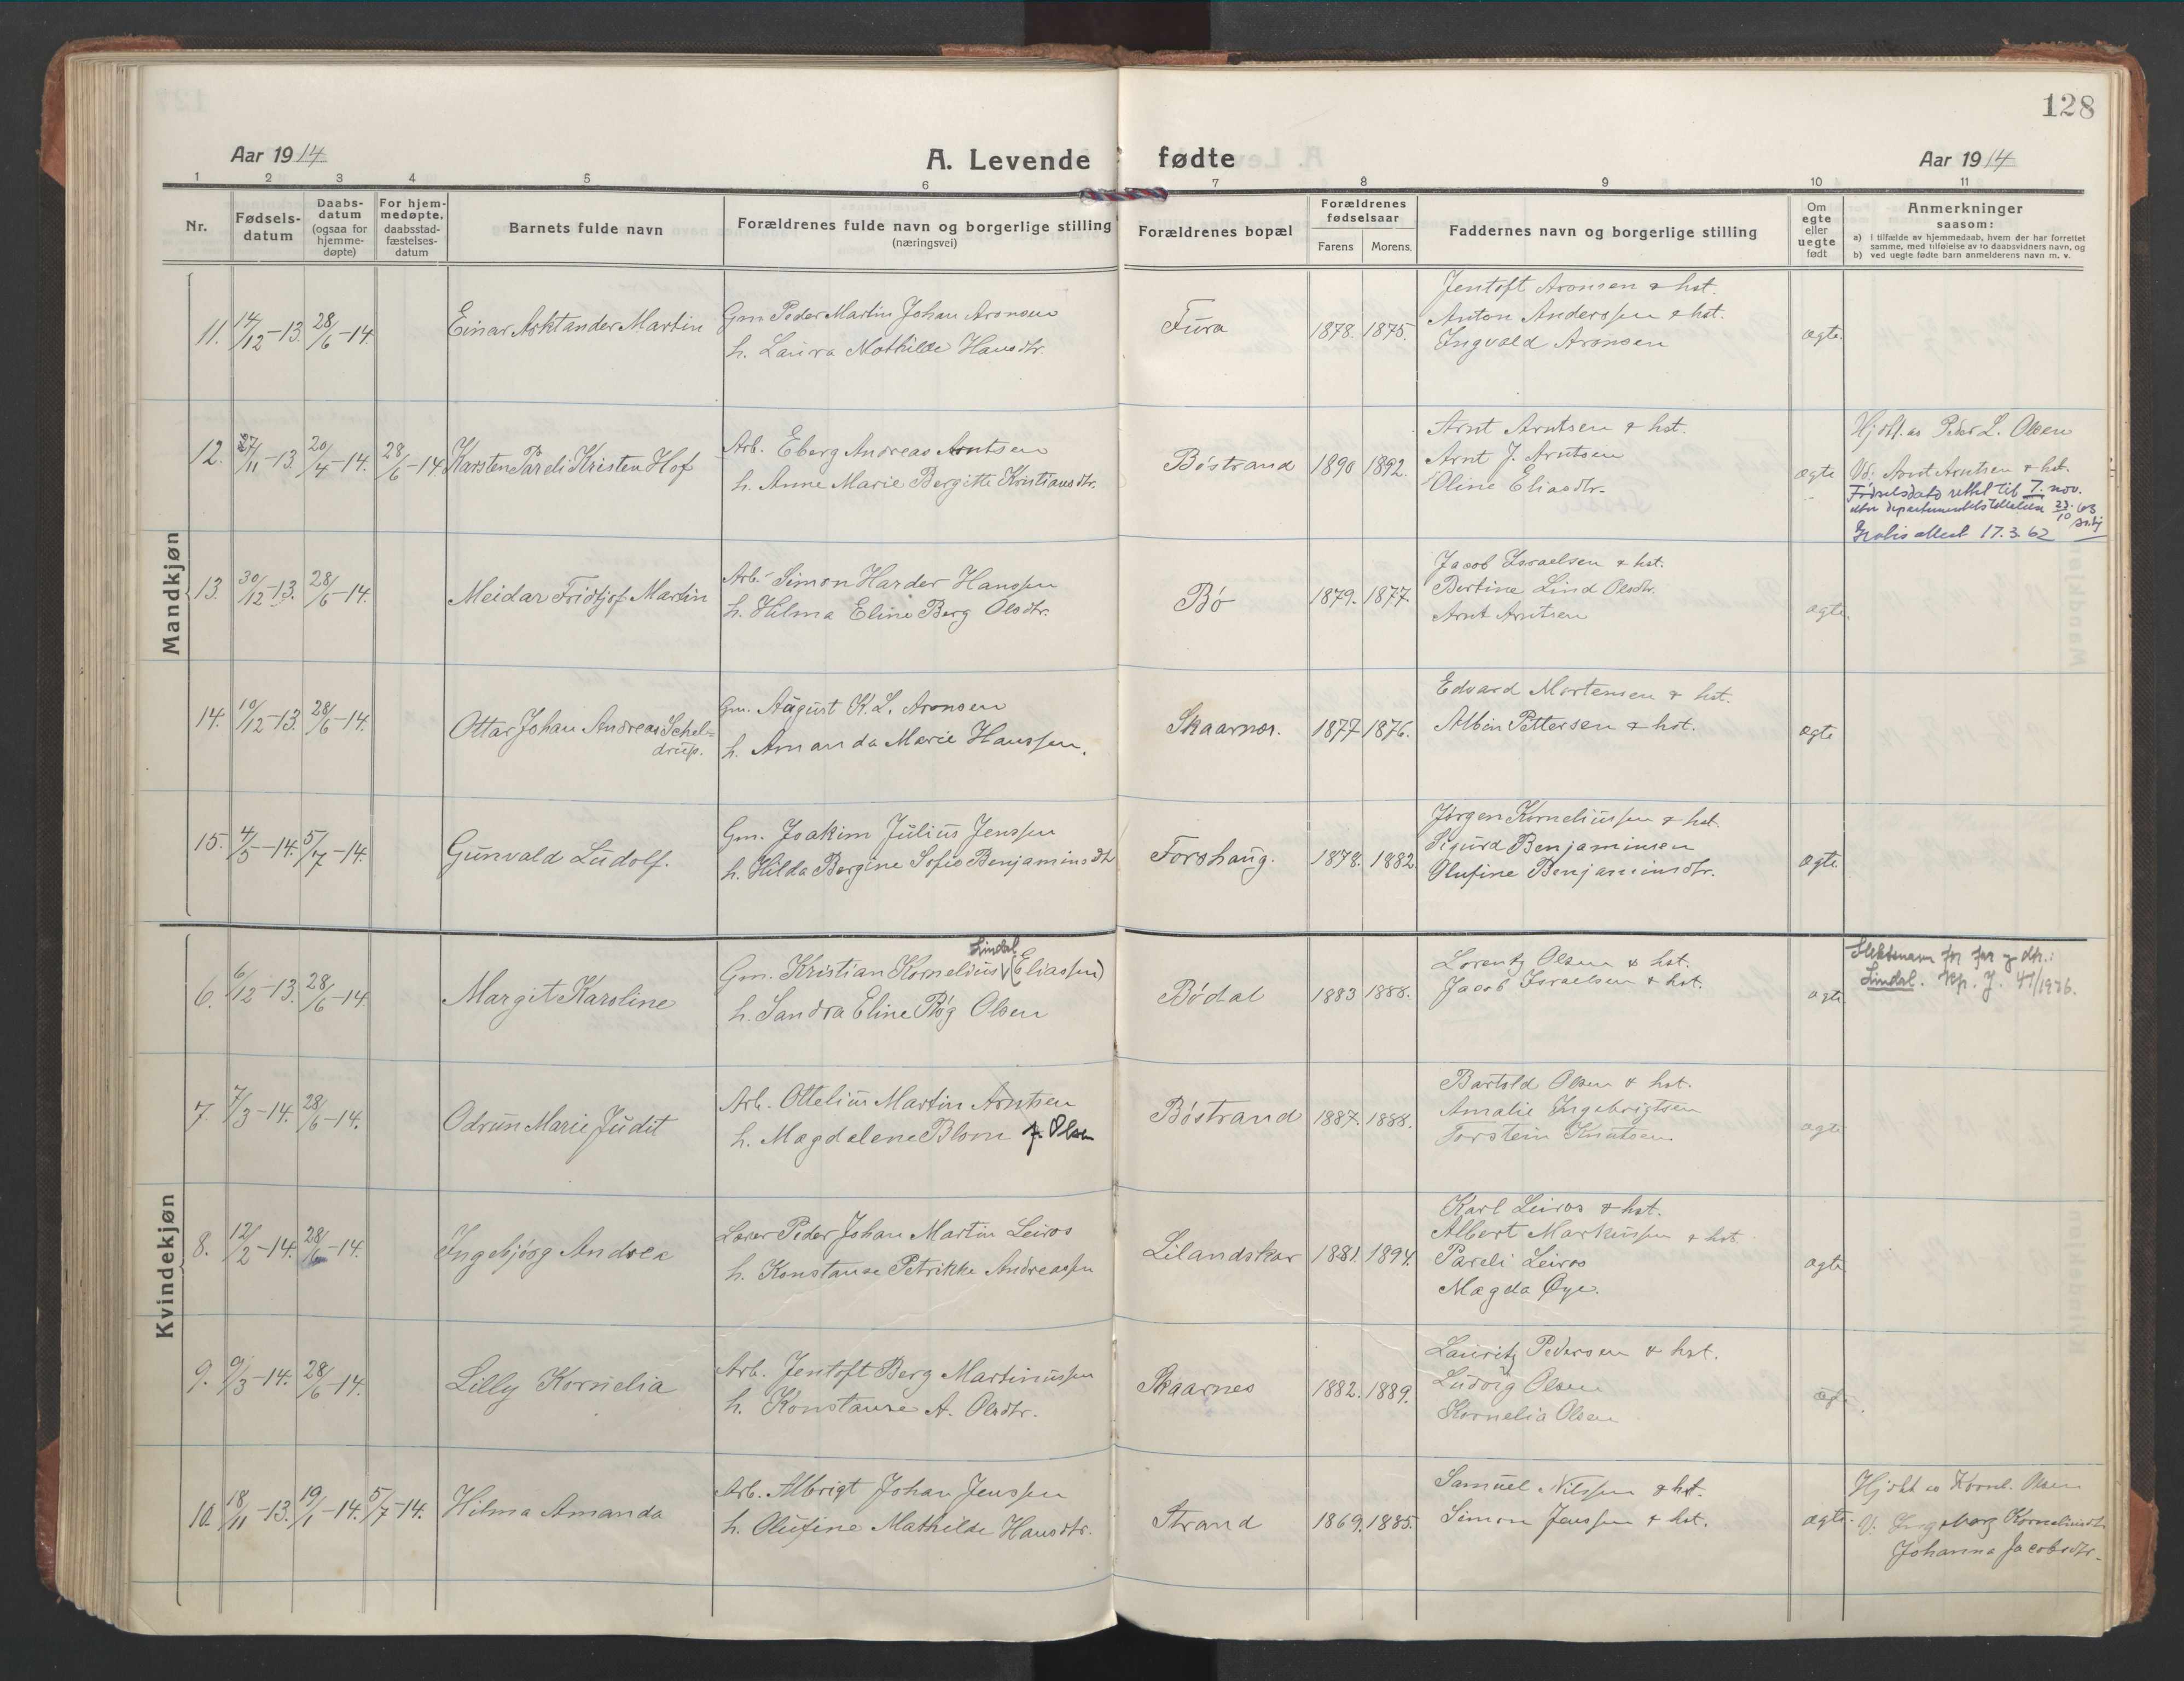 128
Aar 1914
A. Levende fødte
Aar 1914
1 2 3 4 5 6 7 8 9 10 11
Nr.
Fødsels-
datum
Daabs-
datum
(ogsaa for
hjemme-
døpte)
For hjem-
medøpte,
daabsstad-
fæstelses-
datum
Barnets fulde navn
Forældrenes fulde navn og borgerlige stilling
(næringsvei)
Forældrenes bopæl
Forældrenes
fødselsaar
Farens Morens.
Faddernes navn og borgerlige stilling
Om
egte
eller
uegte
født
Anmerkninger
saasom:
a) I tilfælde av hjemmedaab, hvem der har forrettet
samme, med tilføielse av to daabsvidners navn, og
b) ved uegte fødte barn anmelderens navn m. v.
Mandkjøn
11. 14/12-13. 28/6-14.
Einar Asktander Martin
Gm. Peder Martin Johan Aronsen
h. Laura Mathilde Hansdtr.
Fura
1878. 1875.
Jentoft Aronsen & hst.
Anton Anderssen & hst.
Ingvald Aronsen
ægte.
12. 27/11-13. 20/4-14. 28/6-14.
Karsten Pareli Kristen Hof
Arb. Eberg Andreas Arntsen
h. Anne Marie Bergitte Kristiansdtr.
Bøstrand
1890 1892.
Arnt Arntsen & hst.
Arnt J. Arntsen
Oline Eliasdtr.
ægte
Hjdbt. av Peder L. Olsen
Vd: Arnt Arntsen & hst.
Fødselsdato rettet til 7. nov.
etter departementets tillatelse 23/10 63
Gratis attest 17.3.62
13. 30/12-13. 28/6-14.
Meidar Fridtjof Martin
Arb. Simon Harder Hanssen
h. Hilma Eline Berg Olsdtr.
Bø
1879. 1877.
Jacob Israelsen & hst.
Bertine Lind Olsdtr.
Arnt Arntsen
ægte.
14. 10/12-13. 28/6-14.
Ottar Johan Andreas Schel=
drup.
Gm. August K. L. Aronsen
h. Amanda Marie Hanssen.
Skaarnes.
1877 1876.
Edvard Mortensen & hst.
Albin Pettersen & hst.
ægte
15. 4/5-14. 5/7-14.
Gunvald Ludolf.
Gm. Joakim Julius Jenssen
h. Hilda Bergine Sofie Benjaminsdtr
Forshaug.
1878. 1882.
Jørgen Korneliussen & hst.
Sigurd Benjaminsen
Olufine Benjaminsdtr.
ægte.
Kvindekjøn
6. 6/12-13. 28/6-14.
Margit Karoline
Lindal
Gm. Kristian Kornelius (Eliassen)
h. Sandra Eline Bøg Olsen
Bødal
1883 1888.
Lorentz Olsen & hst.
Jacob Israelsen & hst.
ægte
Slektsnavn for far og dtr.:
Lindal. Kp. J. 41/1926.
7. 7/3-14. 28/6-14.
Odrun Marie Judit
Arb. Ottelius Martin Arntsen
h. Magdalene Blom f. Olsen
Bøstrand
1887. 1888.
Bartold Olsen & hst.
Amalie Ingebrigtsen
Torstein Knutsen
ægte
8. 12/2-14. 28/6-14.
Ingebjørg Andrea
Lærer Peder Johan Martin Leiros
h. Konstanse Petrikke Andreassen
Lilandskar
1881. 1894.
Karl Leiros & hst.
Albert Markussen & hst.
Pareli Leiros
Magda Øye.
ægte
9. 9/3-14. 28/6-14.
Lilly Kornelia
Arb. Jentoft Berg Martinussen
h. Konstanse A. Olsdtr.
Skaarnes
1882. 1889.
Lauritz Pedersen & hst.
Ludvig Olsen
Kornelia Olsen
10. 18/11-13. 19/1-14. 5/7-14.
Hilma Amanda
Arb. Albrigt Johan Jenssen
h. Olufine Mathilde Hansdtr.
Strand
1869. 1885.
Samuel Nilssen & hst.
Simon Jenssen & hst.
ægte.
Hjdbt av Kornel. Olsen
V. Ingeborg Korneliusdtr
Johanna Jacobsdtr.